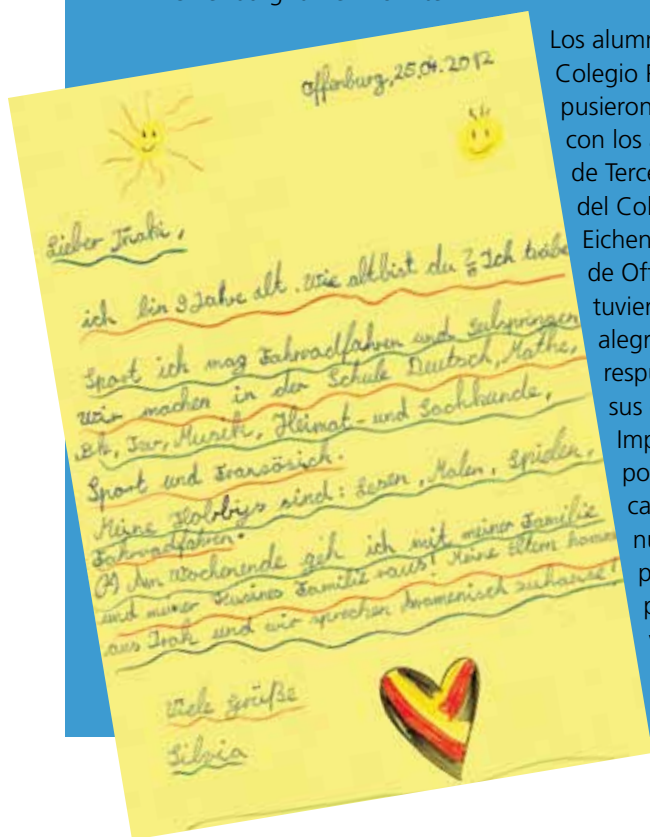 Offenburg, 25.04.2012
Lieber Inaki,
ich bin 9 Jahre alt. Wie alt bist du? Ich
Sport ich mag Fahrradfahren und Seilspringen
Wir machen in der Schule Deutsch, Mathe,
Bk, Musik, Heimat- und Sachkunde,
Sport und Französich.
Meine Hobbys sind: Lesen, Malen, Spielen,
Fahrradfahren.
Am Wochenende geh ich mit meiner Familie
und meiner Kusines Familie raus! Meine Eltern
aus Irak und wir sprechen Aramenisch zuhause!
Viele Grüße
Silvia
Los alum
Colegio
pusieron
con los
de Terce
del Col
Eichen
de Off
tuvier
alegr
respu
sus
Imp
po
ca
nu
p
p